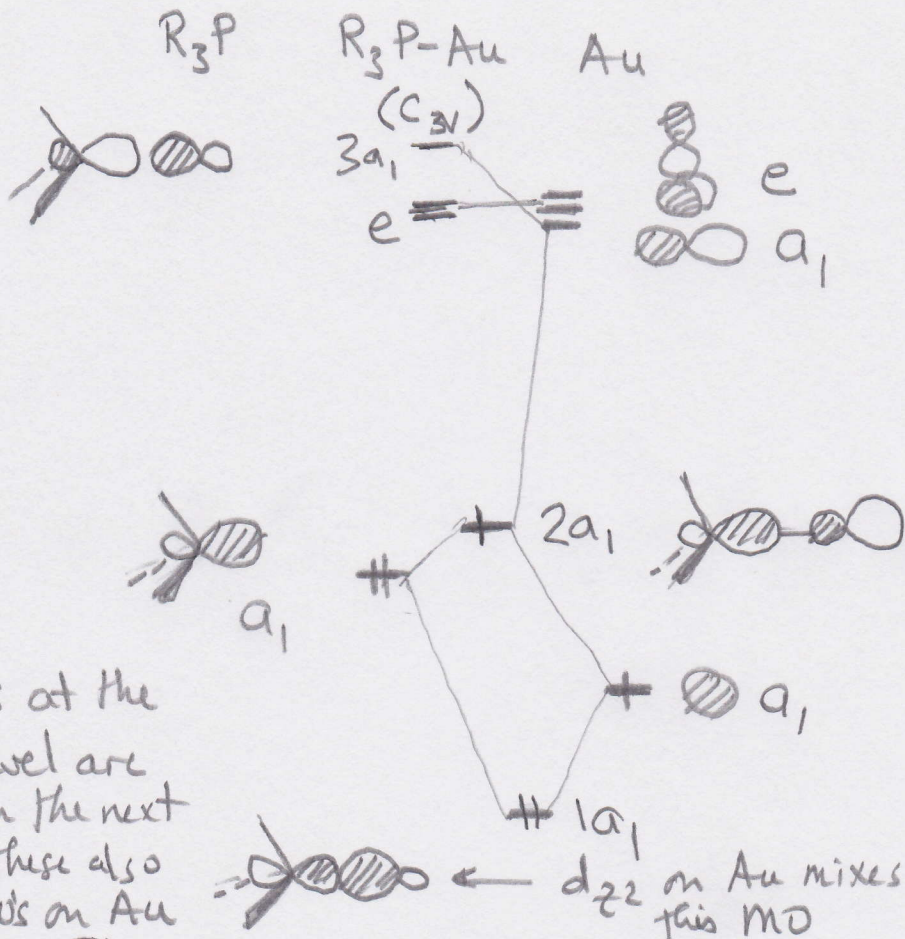 R₃P R₃P-Au Au
(C₃ᵥ)
3a₁
e e
a₁
2a₁
a₁
a₁
at the
are
n the next
1a₁
these also
on Au
d_z² on Au mixes
this MO